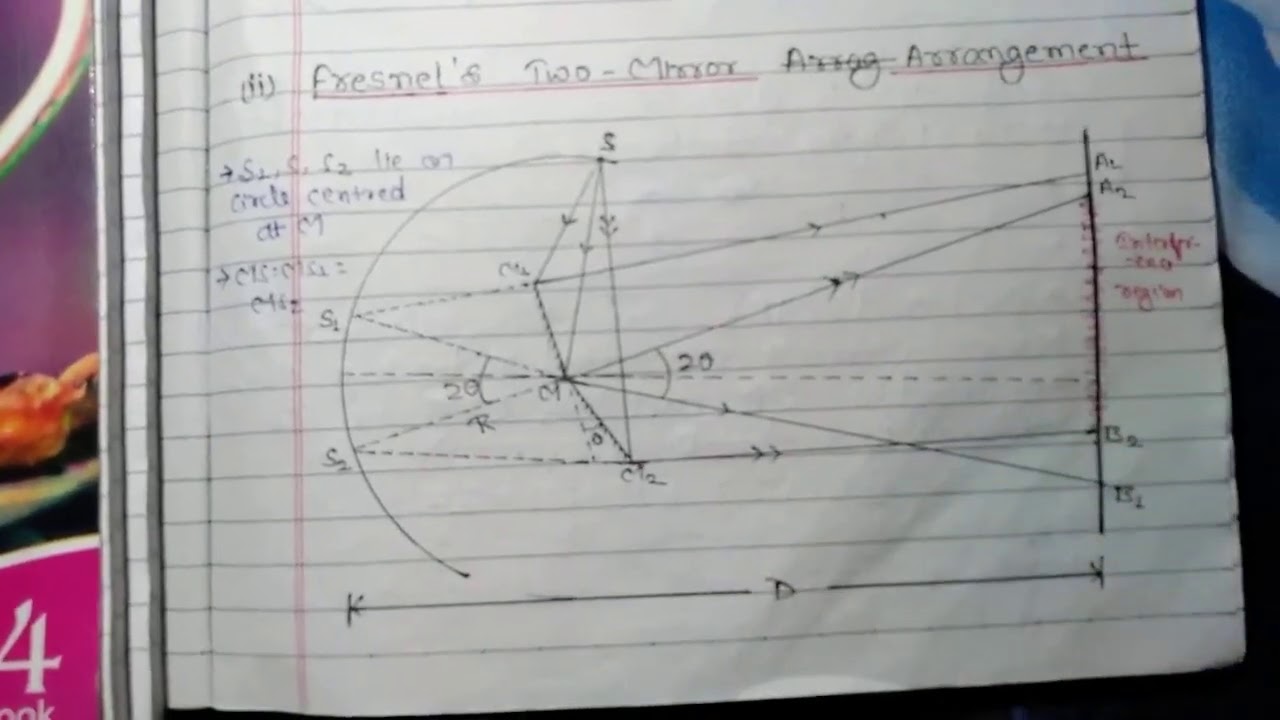 (ii) Fresnel's Two-Mirror Arrag Arrangement
→ S1, S, S2 lie on
circle centred
at M
→ MS=MS1=
MS2
S
M1
S1
2θ
M
R
S2
θ
M2
2θ
A1
A2
Interfer-
region
B2
B1
D
4
ook